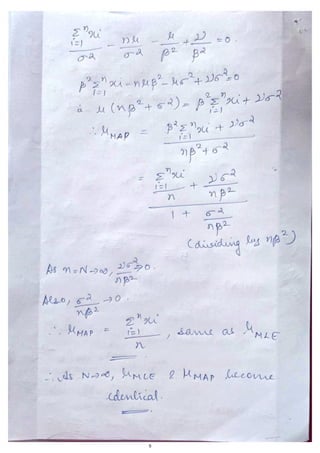 Σ_{i=1}^{n} xi / σ2 - nμ / σ2 - μ / β2 + ν / β2 = 0.
β2 Σ_{i=1}^{n} xi - nμβ2 - μσ2 + νσ2 = 0
μ (nβ2 + σ2) = β2 Σ_{i=1}^{n} xi + νσ2
∴ μMAP = (β2 Σ_{i=1}^{n} xi + νσ2) / (nβ2 + σ2)
= (Σ_{i=1}^{n} xi / n + νσ2 / nβ2) / (1 + σ2 / nβ2)
(dividing by nβ2)
As n=N→∞, νσ2 / nβ2 → 0.
Also, σ2 / nβ2 → 0.
∴ μMAP = Σ_{i=1}^{n} xi / n , same as μMLE
∴ As N→∞, μMLE & μMAP become
identical.
9